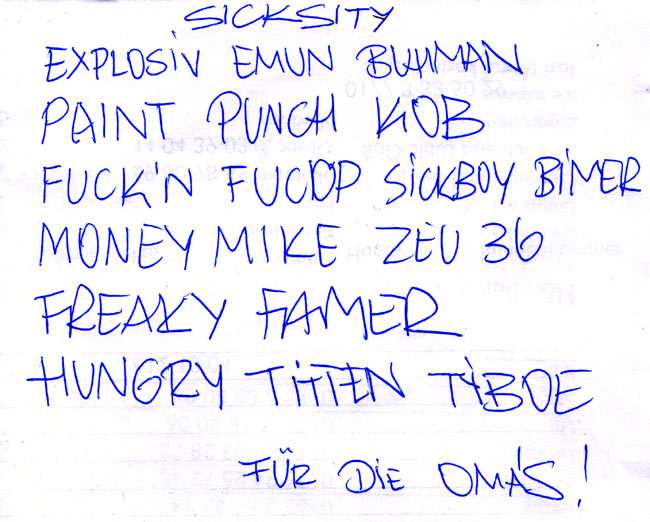 SICKSITY
EXPLOSIV EMUN BUHMAN
PAINT PUNCH KOB
FUCK'N FUCOP SICKBOY BIMER
MONEY MIKE ZEU 36
FREAKY FAMER
HUNGRY TITTEN TYBOE
FÜR DIE OMA'S!